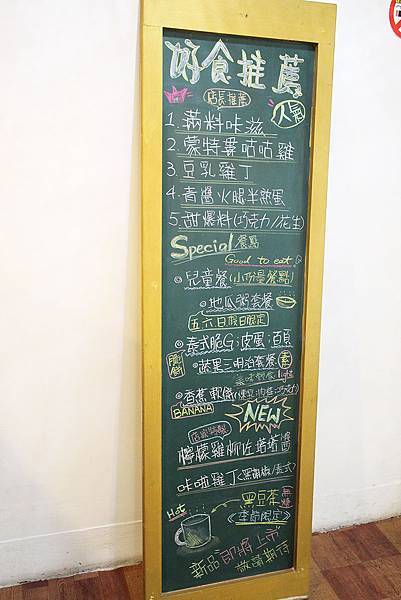 好食推薦
店長推薦
人氣
1. 滿料咔滋
2. 蒙特婁咕咕雞
3. 豆乳雞丁
4. 青醬火腿半熟蛋
5. 甜爆料(巧克力/花生)
Special 餐點
Good to eat
兒童餐(小份量餐點)
地瓜粥套餐
五六日假日限定
泰式脆G;皮蛋;百頁
蔬果三明治套餐 素
light
香蕉軟餅
BANANA
NEW
店家特製
檸檬雞柳佐塔塔醬
咔啦雞丁(黑胡椒/泰式)
Hot
黑豆茶 無糖
《季節限定》
新品即將上市
敬請期待